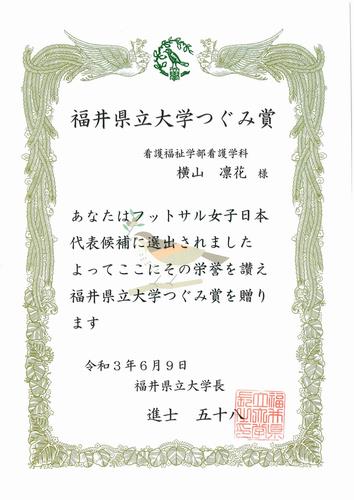 福井県立大学つぐみ賞
看護福祉学部看護学科
横山 凛花 様
あなたはフットサル女子日本
代表候補に選出されました
よってここにその栄誉を讃え
福井県立大学つぐみ賞を贈り
ます
令和3年6月9日
福井県立大学長
進士 五十八